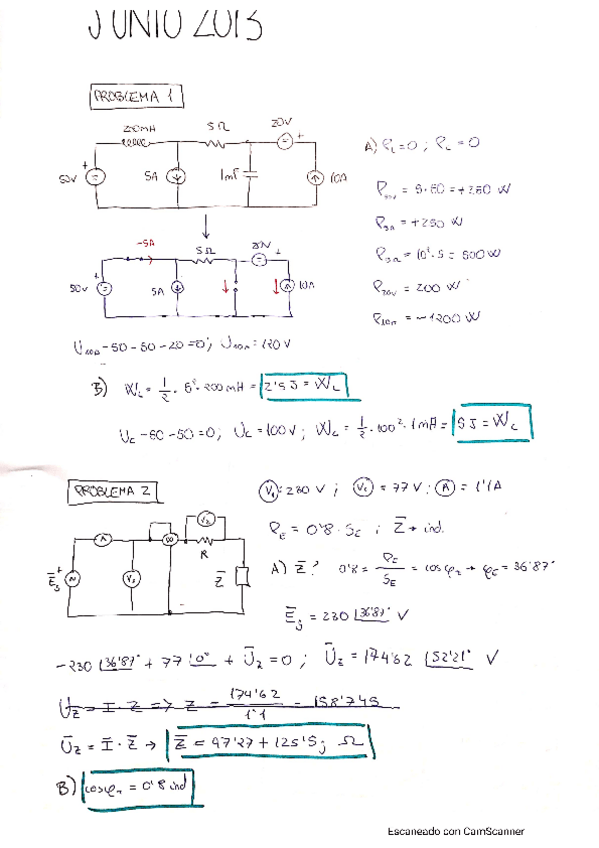 JUNIO 2013
PROBLEMA 1
200mH
5Ω
20V
50V
5A
1mF
10A
A) P_L=0 ; P_C = 0
P_50V = 5·50 = +250 W
P_5A = +250 W
P_5Ω = 10²·5 = 500 W
P_20V = 200 W
P_10A = -1200 W
-5A
5Ω
20V
50V
5A
10A
U_10A -50-50-20=0 ; U_10A = 120 V
B) W_L = 1/2 · 5² · 200 mH = 2'5 J = W_L
U_C -50-50=0 ; U_C = 100 V ; W_C = 1/2 · 100² · 1mH = 5 J = W_C
PROBLEMA 2
V₁: 230 V ; V₂ = 77 V ; A = 1'1A
P_E = 0'8 · S_E ; Z̄ → ind.
A
V₁
W
V₂
R
Z̄
Ē_g
A) Z̄? 0'8 = P_E/S_E = cos φ_E → φ_E = 36'87°
Ē_g = 230 |36'87° V
-230 |36'87° + 77 |0° + Ū_Z = 0 ; Ū_Z = 174'62 |52'21° V
U_Z = I · Z => Z = 174'62/1'1 = 158'745
Ū_Z = Ī · Z̄ → Z̄ = 97'27 + 125'5j Ω
B) cos φ_T = 0'8 ind
Escaneado con CamScanner